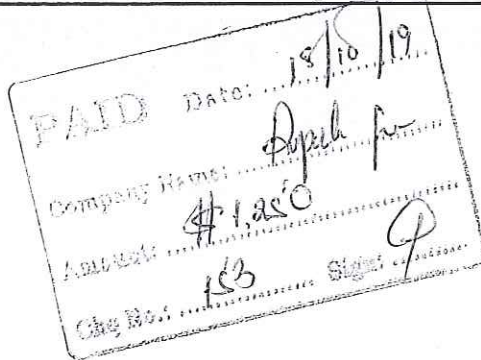 PAID Date: 18/10/19
Company Name:
Amount: $1,250
Chq No.: 153 Sign: